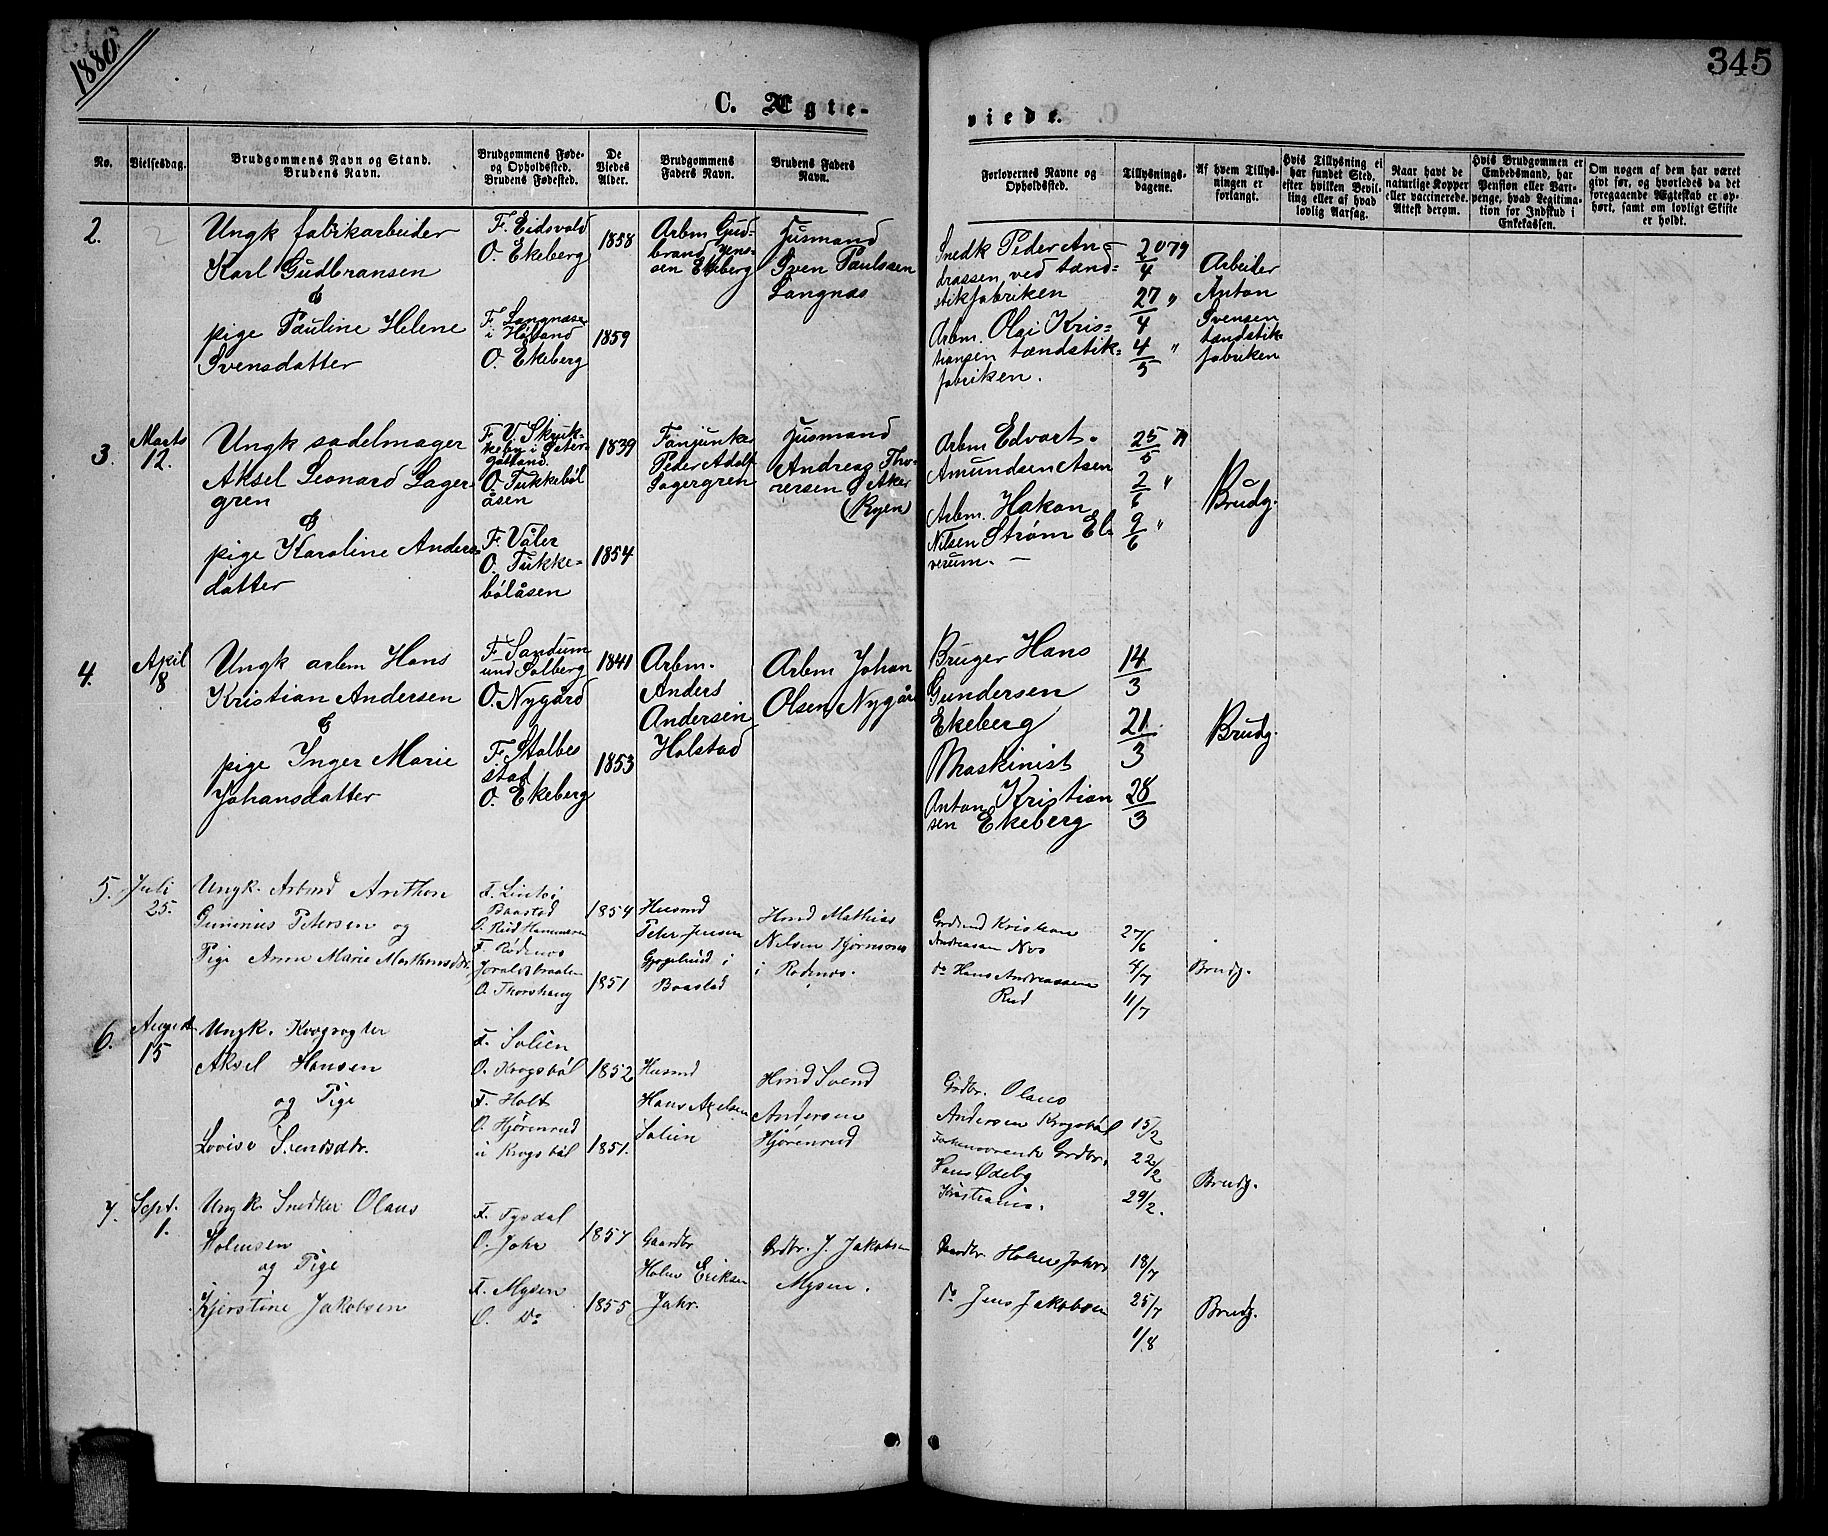 1880
345
C. Ægte-
viede.
No.
Vielsesdag.
Brudgommens Navn og Stand.
Brudens Navn.
Brudgommens Føde-
og Opholdssted.
Brudens Fødested.
De
Viedes
Alder.
Brudgommens
Faders Navn.
Brudens Faders
Navn.
Forlovernes Navne og
Opholdssted.
Tillysnings-
dagene.
Af hvem Tillys-
ningen er
forlangt.
Hvis Tillysning ei
har fundet Sted,
efter hvilken Bevil-
ling eller af hvad
lovlig Aarsag.
Naar havt de
naturlige Kopper
eller vaccinerede.
Attest derom.
Hvis Brudgommen er
Embedsmand, har
Pension eller Vart-
penge, hvad Legitima-
tion for Indskud i
Enkekassen.
Om nogen af dem har været
gift før, og hvorledes da det
foregaaende Ægteskab er op-
hørt, samt om lovligt Skifte
er holdt.
2. 2
Ungk fabrikarbeider
Karl Gudbransen
&
pige Pauline Helene
Svensdatter
F. Eidsvold
O. Ekeberg
F. Langnæsen
i Høland
O. Ekeberg
1858
1859
Arbm Gud-
brand Jens-
sen Ekeberg
Husmand
Sven Paulssen
Langnæs
Snedk Peder An-
drassen ved tænd-
stikfabriken
Arbm. Olai Kris-
tiansen tændstik-
fabriken.
20/4 79
27/4 "
4/5 "
Arbeider
Anton
Svensen
tændstik
fabriken
3.
Marts
12.
Ungk sadelmager
Aksel Leonard Lager-
gren
&
pige Karoline Anders
datter
F. V. Skruk-
keby i Øster-
gøtland.
O. Tukkebøl
åsen
F. Våler
O. Tukke-
bølåsen
1839
1854
Fanjunker
Peder Adolf
Lagergren
Husmand
Andreas Tho-
rersen i Aker
(Ryen)
Arbm Edvart.
Amundsen Asen
Arbm. Hakon
Nilsen Strøm El-
verum. —
25/5 79
2/6 "
9/6 "
Brudg.
4.
April
8
Ungk arbm Hans
Kristian Andersen
&
pige Inger Marie
Johansdatter
F. Sandum
und Solberg
O. Nygård
F. Stolbe
stad
O. Ekeberg
1841
1853
Arbm.
Anders
Andersen
Holstad
Arbm Johan
Olsen Nygård
Bruger Hans
Gundersen
Ekeberg
Maskinist
Anton Kristian
sen Ekeberg
14/3
21/3
28/3
Brudg.
5.
Juli
25.
Ungk. Arbmd Anthon
Gunnius Petersen og
Pige Anne Marie Mathiasdtr.
Baastad
F. Rødenes
O. Thorshaug
1854
1851
Husmd
Peter Jensen
i
Baastad
Hmd Mathias
Nilsen
i Rødenes.
Grdmd Kristian
Andreasen Nes
do Hans Andreassen
Rud
27/6
4/7
11/7
Brudg.
6.
August
15
Ungk. Kvægrøgter
Aksel Hansen
og Pige
Lovise Svendsdtr.
F. Solien
O. Krogsbøl
F. Holt
O. Hjørenrud
u Krogsbøl
1852
1851.
Husmd
Hans Axelsen
Solien
Hmd Svend
Andersen
Hjørenrud
Grdbr. Olaus
Andersen Krogsbøl
Forhenværende Grdbr.
Hans Ødeby
Kristiania.
15/2
22/2
29/2.
Brudg.
7.
Sept.
1.
Ungk. Snedker Olaus
Holmsen
og Pige
Kjerstine Jakobsen
F. Tysdal
O. Jahr
F. Mysen
O. Do
1857
1855
Gaardbr
Holm Eriksen
Jahr.
Grdbr. J. Jakobsen
Mysen.
Gaardbr. Holm Jahr
do Jens Jakobsen
18/7
25/7
1/8
Brudg.